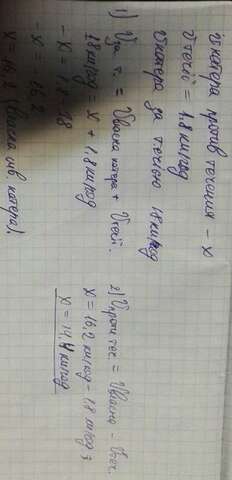 υ катера против течения - x
υ течії = 1.8 км/год
υ катера за течією 18 км/год
1) Vза т. = Vвласна катера + Vтечії.
18 км/год = x + 1.8 км/год
-x = 1.8 - 18
-x = -16.2
x = 16.2 (власна шв. катера).
2) Vпроти теч. = Vвласна - Vтеч.
x = 16.2 км/год - 1.8 км/год
x = 14,4 км/год